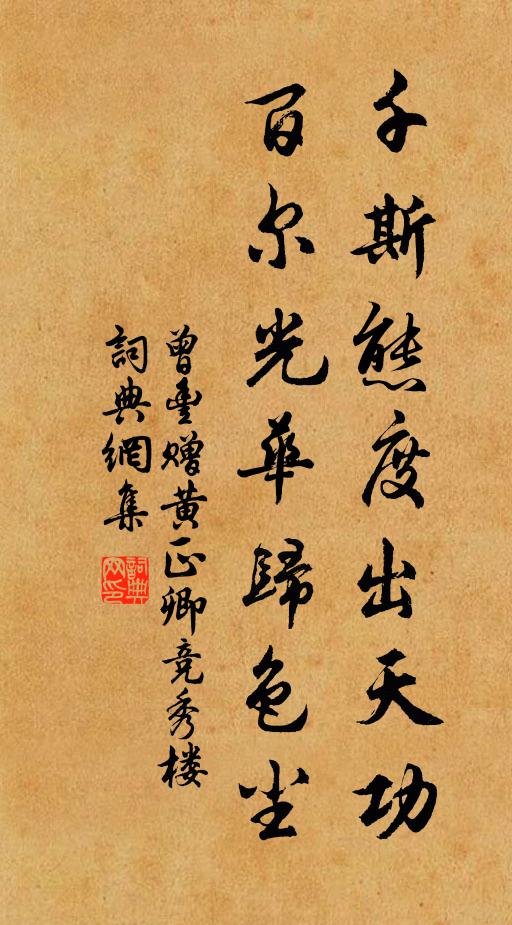 千斯態度出天功
百尔光華歸色尘
曾豊赠黄正卿竞秀楼
詞典網集
詞典网印